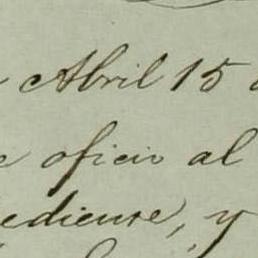 Abril 15
oficio al
ediense, y